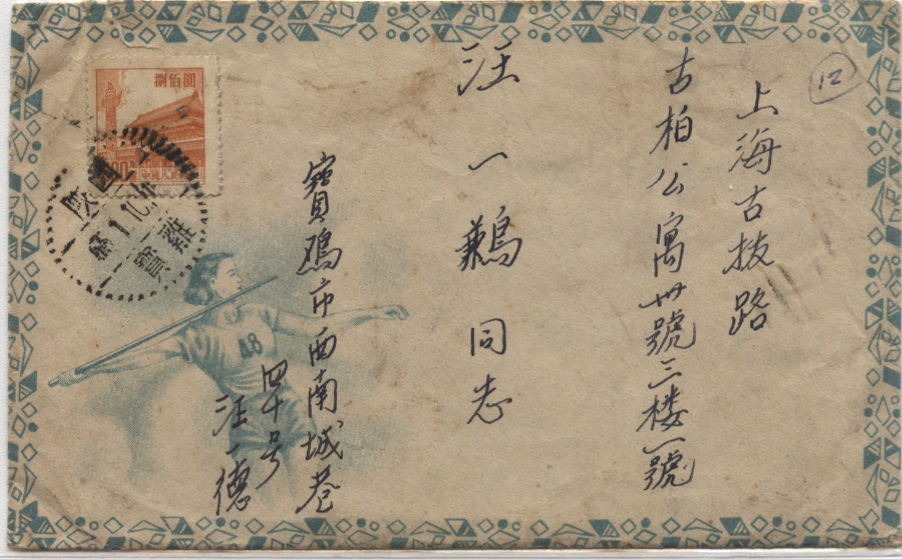 上海古拔路
古柏公寓卅號三楼一號
汪一鶼同志
寶鸡市西南城巷
四十号
汪一德
12
捌佰圓
中國人民
48
陝西
寶雞